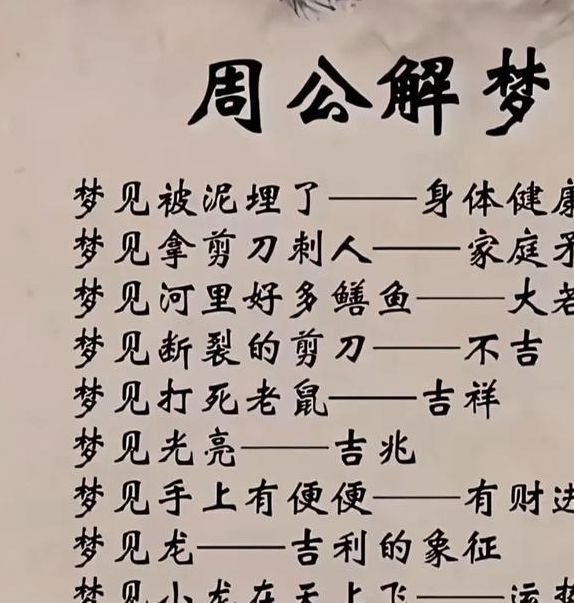 周公解梦
梦见被泥埋了——身体健康
梦见拿剪刀刺人——家庭矛
梦见河里好多鳝鱼——大
梦见断裂的剪刀——不吉
梦见打死老鼠——吉祥
梦见光亮——吉兆
梦见手上有便便——有财进
梦见龙——吉利的象征
梦见小龙在天上飞——运势